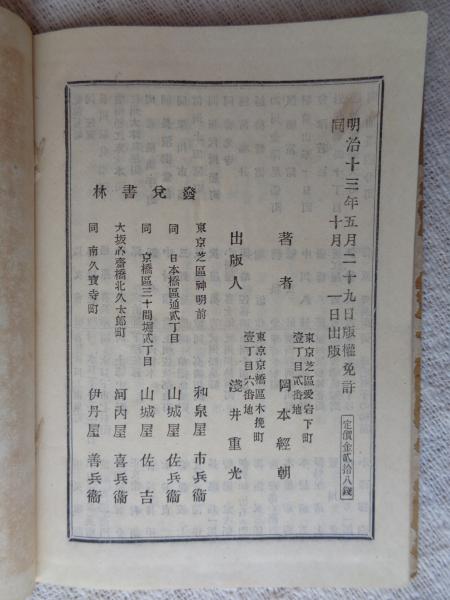 明治十三年五月二十九日版權免許
同　　　十月　一日出版
定價金貳拾八錢
著者
東京芝區愛宕下町
壹丁目貳番地
岡本經朝
出版人
東京京橋區木挽町
壹丁目六番地
淺井重光
發兌書林
東京芝區神明前　和泉屋市兵衞
同　日本橋區通貳丁目　山城屋佐兵衞
同　京橋區三十間堀貳丁目　山城屋佐吉
大坂心齋橋北久太郎町　河內屋喜兵衞
同　南久寶寺町　伊丹屋善兵衞